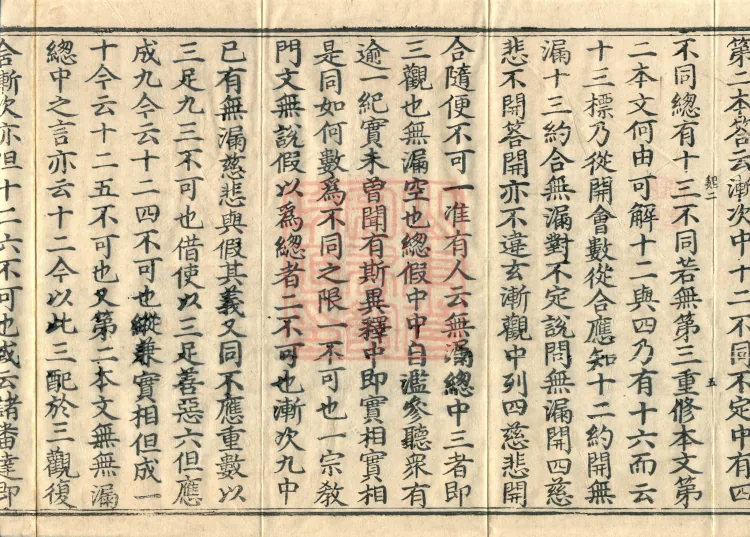 第二本答云漸次中十二不同不定中有四
不同總有十三不同若無第三重修本文第
二本文何由可解十二與四乃有十六而云
十三標乃從開會數從合應知十二約開無
漏十三約合無漏對不定說問無漏開四慈
悲不開答開亦不違玄漸觀中列四慈悲開
合隨便不可一准有人云無漏總中三者即
三觀也無漏空也總假中中自濫參聽衆有
逾一紀實未曾聞有斯異釋中即實相實相
是同如何數為不同之限一不可也一宗教
門文無說假以為總者二不可也漸次九中
已有無漏慈悲與假其義又同不應重數以
三足九三不可也借使以三足善惡六但應
成九今云十二四不可也縱兼實相但成一
十今云十二五不可也又第二本文無無漏
總中之言亦云十二今以此三配於三觀復
合漸次亦但十二六不可也或云諸番達即
五